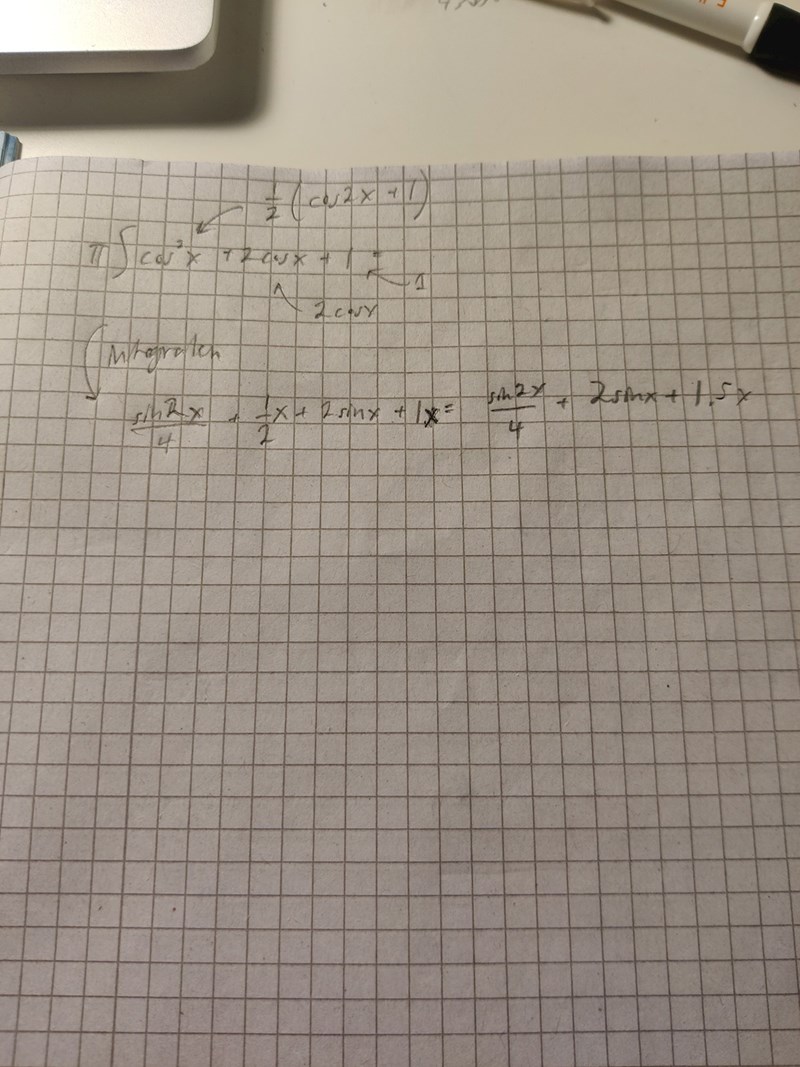 1/2 (cos2x + 1)
π∫cos²x + 2cosx + 1 =
1
2cosx
sin2x/4 + 1/2x + 2sinx + 1x = sin2x/4 + 2sinx + 1.5x